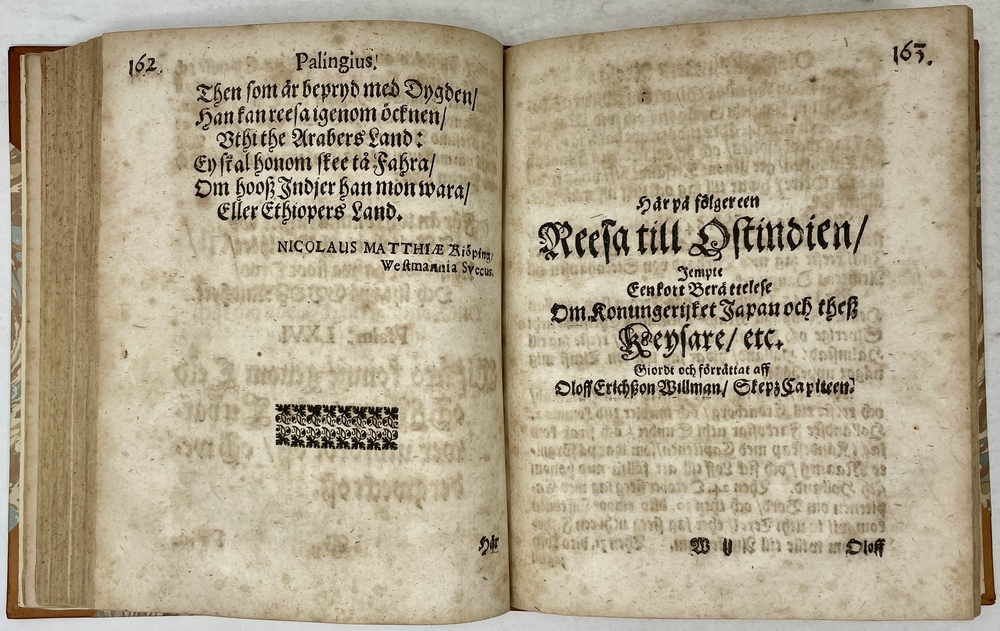 162.
Palingius.
Then som är beprydmed Dygden/
Han kan reesa igenom öcknen/
Vthi the Arabers Land:
Ey skal honom skee tå Fahra/
Om hooß Indjer han mon wara/
Eller Ethiopers Land.
NICOLAUS MATTHIÆ Kiöping/
Westmannia Svecus.
Här
163.
Här på fölger een
Reesa till Ostindien/
Jempte
Een kort Berättelese
Om Konungerijket Japan och theß
Keysare/ etc.
Giordt och förrättat aff
Oloff Erichßon Willman/ Skepz Capiteen.
W ij
Oloff